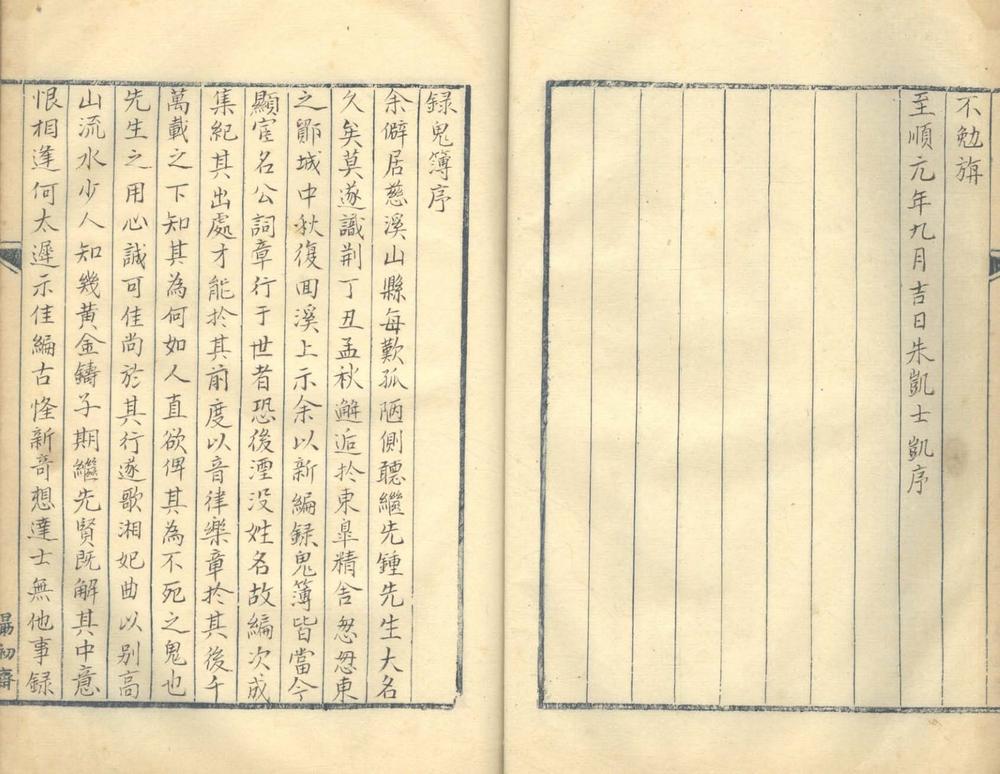 不勉旃
至順元年九月吉日朱凱士凱序
録鬼簿序
余僻居慈溪山縣每歎孤陋側聽繼先鍾先生大名
久矣莫遂識荆丁丑孟秋邂逅於東皐精舎怱怱東
之鄮城中秋復回溪上示余以新編録鬼簿皆當今
顯宦名公詞章行于世者恐後湮没姓名故編次成
集紀其出處才能於其前度以音律樂章於其後千
萬載之下知其為何如人直欲俾其為不死之鬼也
先生之用心誠可佳尚於其行遂歌湘妃曲以别高
山流水少人知幾黄金鑄子期繼先賢既解其中意
恨相逢何太遲示佳編古怪新奇想達士無他事録
初齋